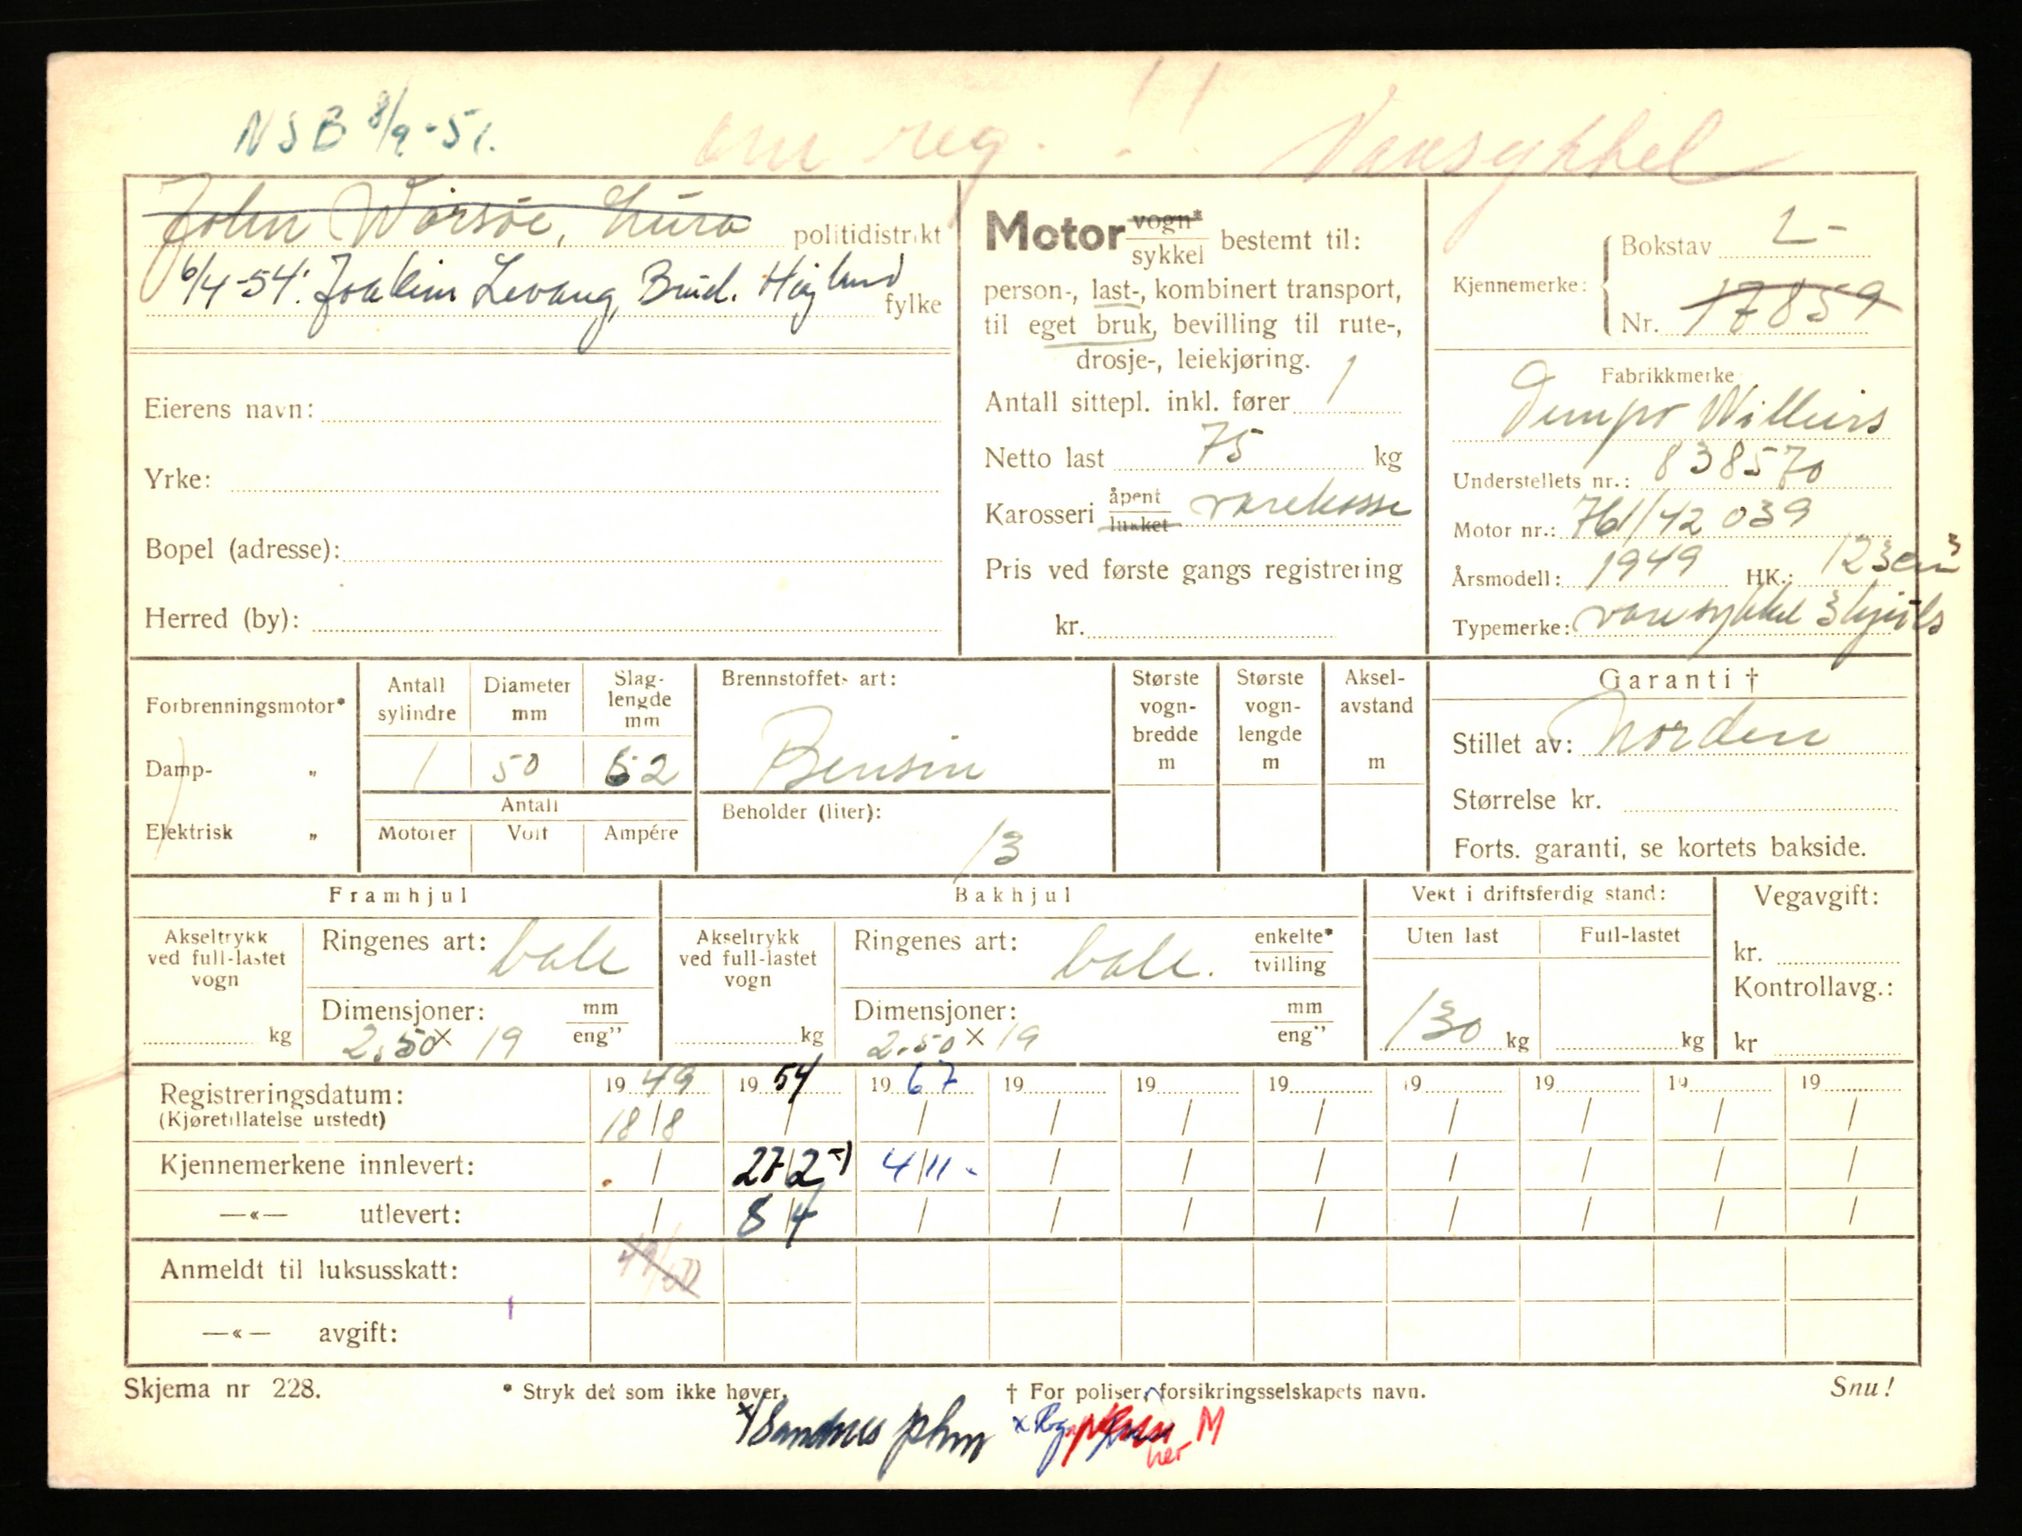 NSB 8/9-51.
om reg. !! Varesykkel
John Warsøe, Lura politidistrikt
6/4-54. Joakim Levang, Brud. Høyland fylke
Eierens navn:
Yrke:
Bopel (adresse):
Herred (by):
Motor vogn* / sykkel bestemt til:
person-, last-, kombinert transport,
til eget bruk, bevilling til rute-,
drosje-, leiekjøring.
Antall sittepl. inkl. fører 1
Netto last 75 kg
Karosseri åpent / lukket varekasse
Pris ved første gangs registrering
kr.
Kjennemerke: Bokstav L-
Nr. 17859
Fabrikkmerke
Tempo Williers
Understellets nr.: 838570
Motor nr.: 761/42 039
Årsmodell: 1949 HK.: 123 cm³
Typemerke: varesykkel 3 hjuls
Forbrenningsmotor*
Damp- „
Elektrisk „
Antall sylindre 1
Diameter mm 50
Slaglengde mm 62
Antall
Motorer Volt Ampére
Brennstoffets art:
Bensin
Beholder (liter):
13
Største vognbredde m
Største vognlengde m
Akselavstand m
Garanti †
Stillet av: Norden
Størrelse kr.
Forts. garanti, se kortets bakside.
Framhjul
Akseltrykk ved full-lastet vogn kg
Ringenes art: ball
Dimensjoner: mm / eng"
2.50 x 19
Bakhjul
Akseltrykk ved full-lastet vogn kg
Ringenes art: ball. enkelte* / tvilling
Dimensjoner: mm / eng"
2.50 x 19
Vekt i driftsferdig stand:
Uten last Full-lastet
130 kg kg
Vegavgift:
kr.
Kontrollavg.:
kr
Registreringsdatum: 19 49 19 54 19 67 19 19 19 19 19 19 19
(Kjøretillatelse utstedt) 18/8 / / / / / / / / /
Kjennemerkene innlevert: / 27/2 x) 4/11 - / / / / / / /
—«— utlevert: / 8/4 / / / / / / / /
Anmeldt til luksusskatt: 49/50
—«— avgift:
Skjema nr 228. * Stryk det som ikke høver. † For poliser, forsikringsselskapets navn. Snu!
x/ Sandnes phm
her M